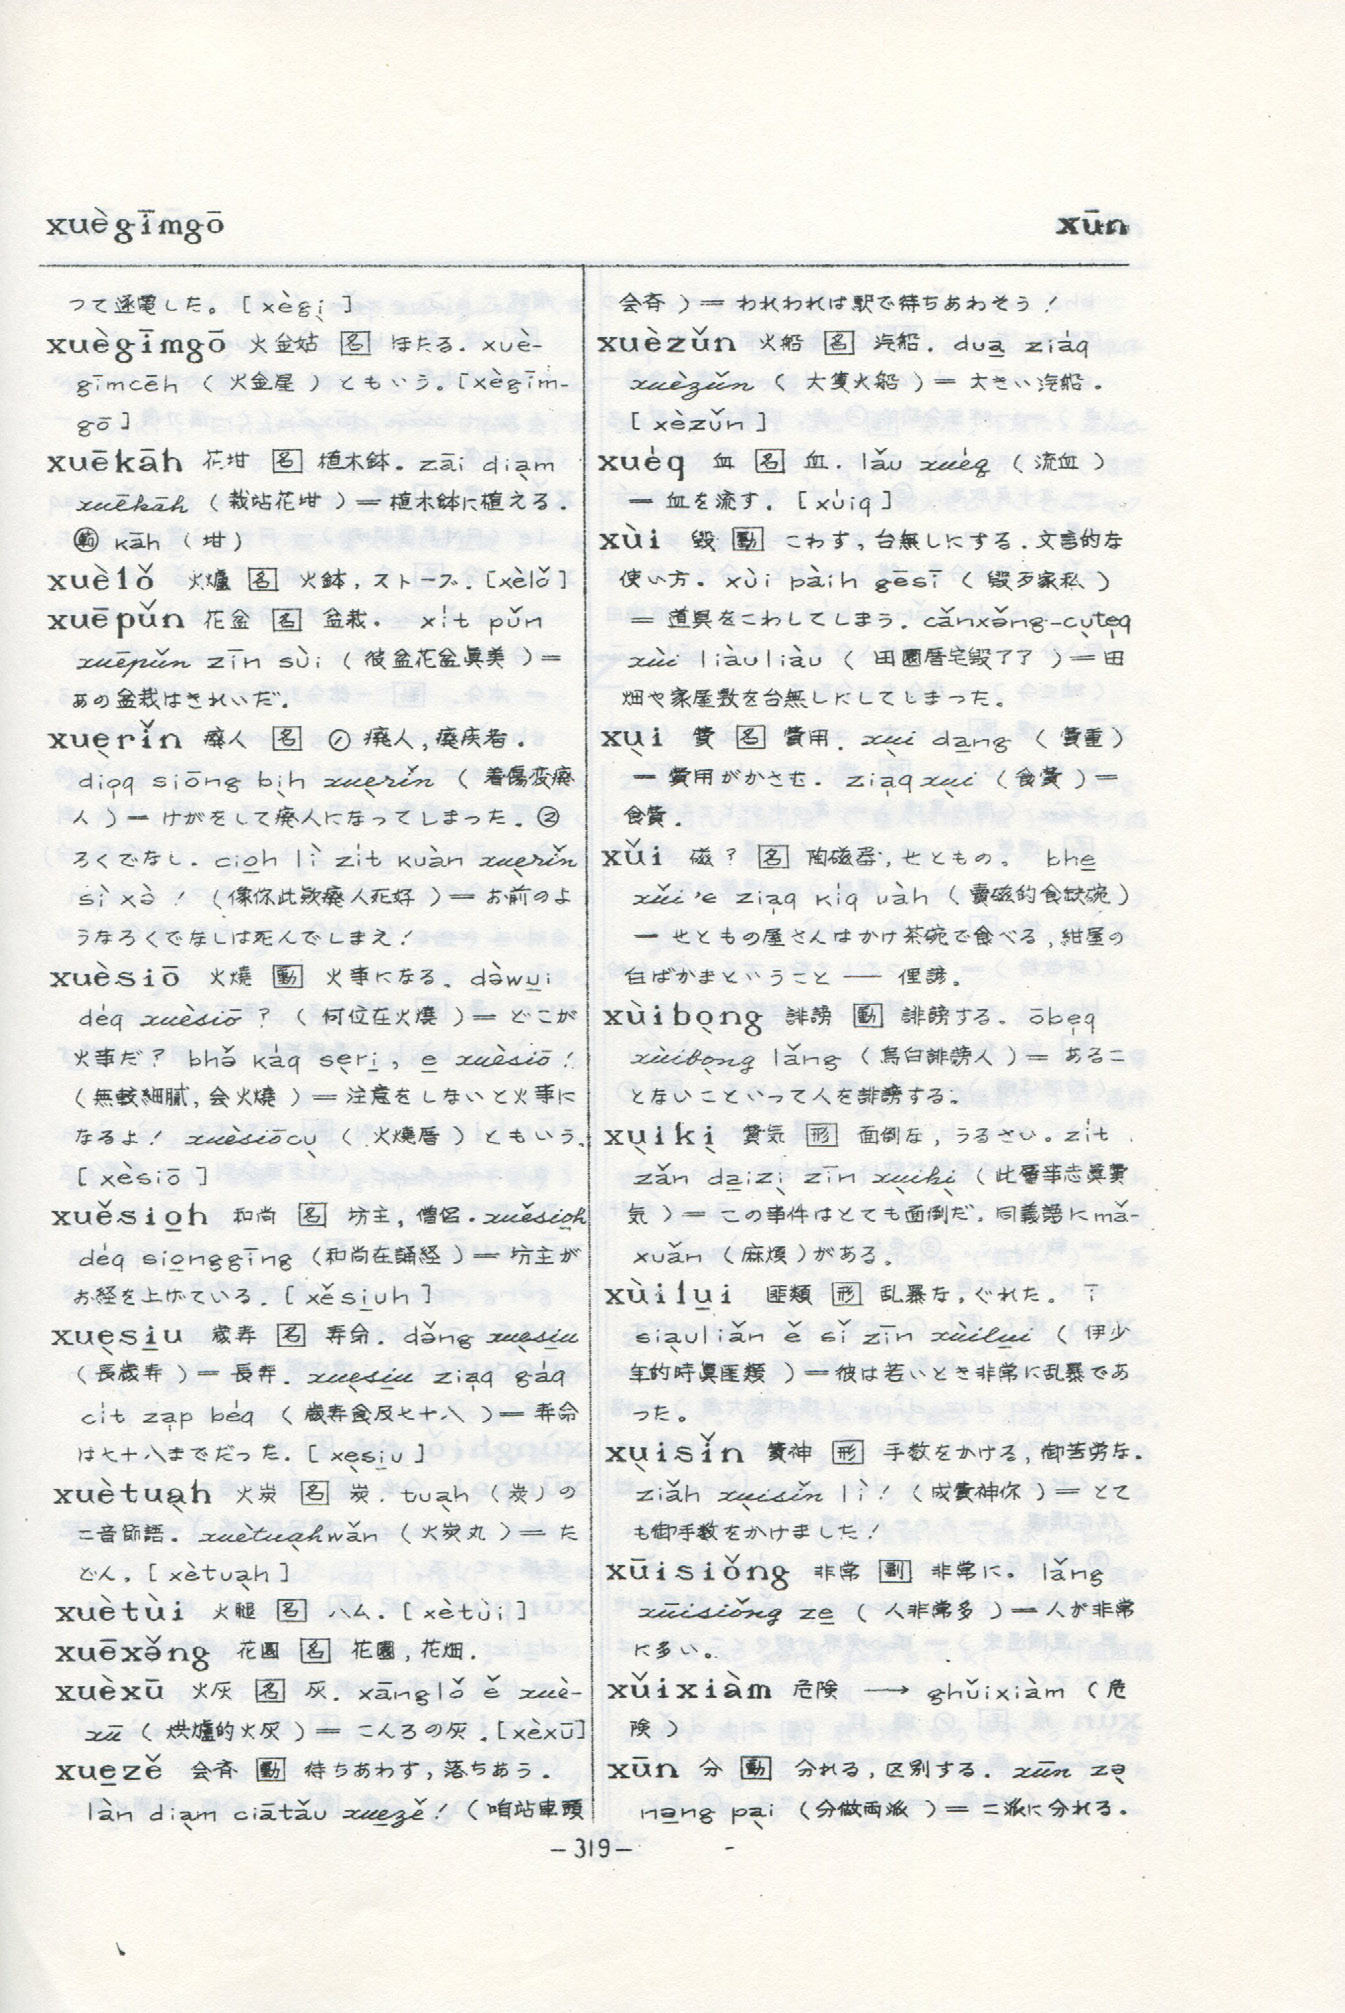 xuègīmgō
xūn
つて逐電した。[xègi̖]
xuègīmgō 火金姑 [名] ほたる. xuè-
gīmcēh (火金星) ともいう。[xègīm-
gō]
xuēkāh 花坩 [名] 植木鉢. zāi dia̖m
xuēkāh (栽站花坩) ＝ 植木鉢に植える.
kāh (坩)
xuèlǒ 火爐 [名] 火鉢, ストーブ. [xèlǒ]
xuēpǔn 花盆 [名] 盆栽. xi̍t pǔn
xuēpǔn zīn sùi (彼盆花盆眞美) ＝
あの盆栽はきれいだ.
xue̖rǐn 癈人 [名] ① 癈人, 癈疾者.
dio̍q siōng bi̖h xue̖rǐn (着傷変癈
人) ＝ けがをして廃人になってしまった. ②
ろくでなし. cio̱h lì zi̍t kuàn xue̖rǐn
sì xə̀! (像你此欵癈人死好) ＝ お前のよ
うなろくでなしは死んでしまえ!
xuèsiō 火燒 [動] 火事になる. dəwu̱i
de̍q xuèsiō? (何位在火燒) ＝ どこが
火事だ? bhə̌ ka̍q se̖ri̖, e̱ xuèsiō!
(無較細膩, 会火燒) ＝ 注意をしないと火事に
なるよ! xuèsiōcu̖ (火燒厝) ともいう.
[xèsiō]
xuěsio̱h 和尚 [名] 坊主, 僧侶. xuěsio̱h
de̍q sio̱nggīng (和尚在誦経) ＝ 坊主が
お経を上げている. [xěsi̱uh]
xue̖si̱u 歳寿 [名] 寿命. də̌ng xue̖si̱u
(長歳寿) ＝ 長寿. xue̖si̱u zia̍q ga̍q
ci̍t za̍p be̍q (歳寿食及七十八) ＝ 寿命
は七十八までだった. [xe̖si̱u]
xuètua̖h 火炭 [名] 炭. tua̖h (炭) の
二音節語. xuètua̖hwǎn (火炭丸) ＝ た
どん. [xètua̖h]
xuètùi 火腿 [名] ハム. [xètùi]
xuēxə̌ng 花園 [名] 花園, 花畑.
xuèxū 火灰 [名] 灰. xānglǒ ě xuè-
xū (烘爐的火灰) ＝ こんろの灰. [xèxū]
xu̱ezě 会斉 [動] 待ちあわす, 落ちあう.
làn dia̖m ciātǎu xu̱ezě! (咱站車頭
会斉) ＝ われわれは駅で待ちあわそう!
xuèzǔn 火船 [名] 汽船. dua̱ zia̍q
xuèzǔn (大隻火船) ＝ 大きい汽船.
[xèzǔn]
xue̍q 血 [名] 血. lǎu xue̍q (流血)
＝ 血を流す. [xui̍q]
xùi 毀 [動] こわす, 台無しにする. 文言的な
使い方. xùi pàih gēsī (毀歹家私)
＝ 道具をこわしてしまう. cǎnxə̌ng-cu̖te̍q
xùi liàuliàu (田園厝宅毀了了) ＝ 田
畑や家屋敷を台無しにしてしまった。
xu̖i 費 [名] 費用. xu̖i da̱ng (費重)
＝ 費用がかさむ. zia̍q xu̖i (食費) ＝
食費.
xǔi 磁? [名] 陶磁器, せともの. bhe̱
xǔi'e zia̍q ki̍q uàh (賣磁的食缺碗)
＝ せともの屋さんはかけ茶碗で食べる, 紺屋の
白ばかまということ — 俚諺.
xùibo̖ng 誹謗 [動] 誹謗する. ōbe̍q
xùibo̖ng lǎng (烏白誹謗人) ＝ あるこ
とないこといって人を誹謗する.
xu̖iki̖ 費気 [形] 面倒な, うるさい. zi̍t
zǎn da̱izi̖ zīn xu̖iki̖ (此層事志眞費
気) ＝ この事件はとても面倒だ. 同義語に mǎ-
xuǎn (麻煩) がある.
xùilu̱i 匪類 [形] 乱暴な, ぐれた. ī
sia̖uliǎn ě sǐ zīn xùilu̱i (伊少
年的時眞匪類) ＝ 彼は若いとき非常に乱暴であ
った.
xu̖isǐn 費神 [形] 手数をかける, 御苦労な.
ziǎh xu̖isǐn lì! (成費神你) ＝ とて
も御手数をかけました!
xūisiǒng 非常 [副] 非常に. lǎng
xūisiǒng ze̱ (人非常多) ＝ 人が非常
に多い.
xǔixiàm 危険 → ghǔixiàm (危
険)
xūn 分 [動] 分れる, 区別する. xūn zə̖
nə̱ng pa̖i (分做両派) ＝ 二派に分れる.
-319-